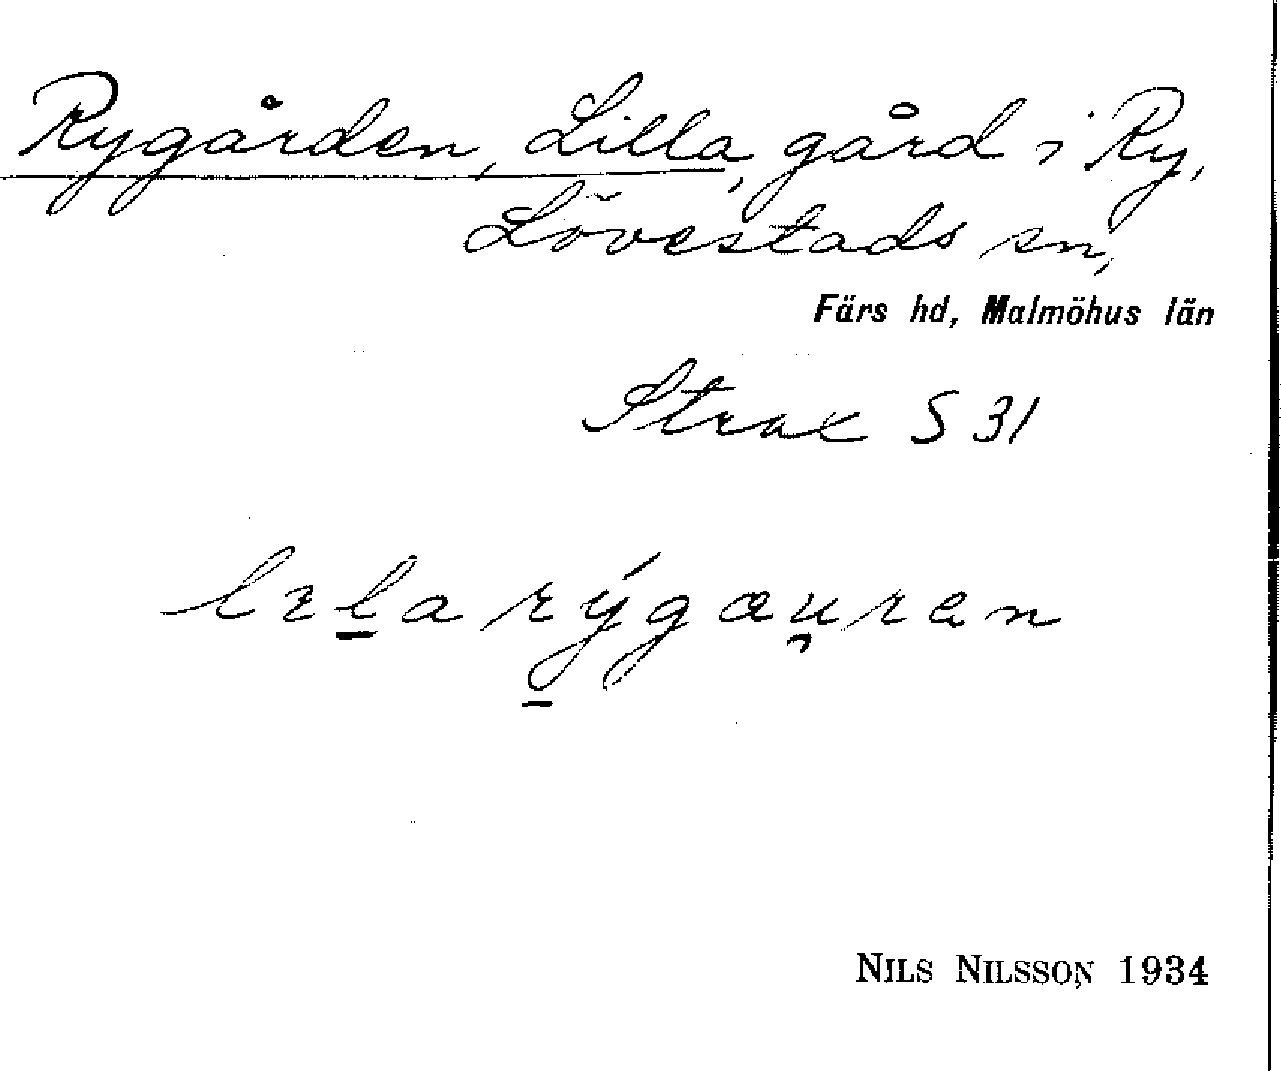 Rygården, Lilla, gård i Ry,
Lövestads sn,
Färs hd, Malmöhus län
Strax S 31
NILS NILSSON 1934